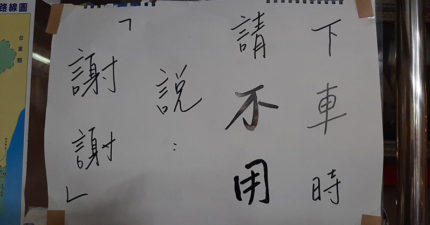 下車時
請不用
説：
「謝謝」
路線圖